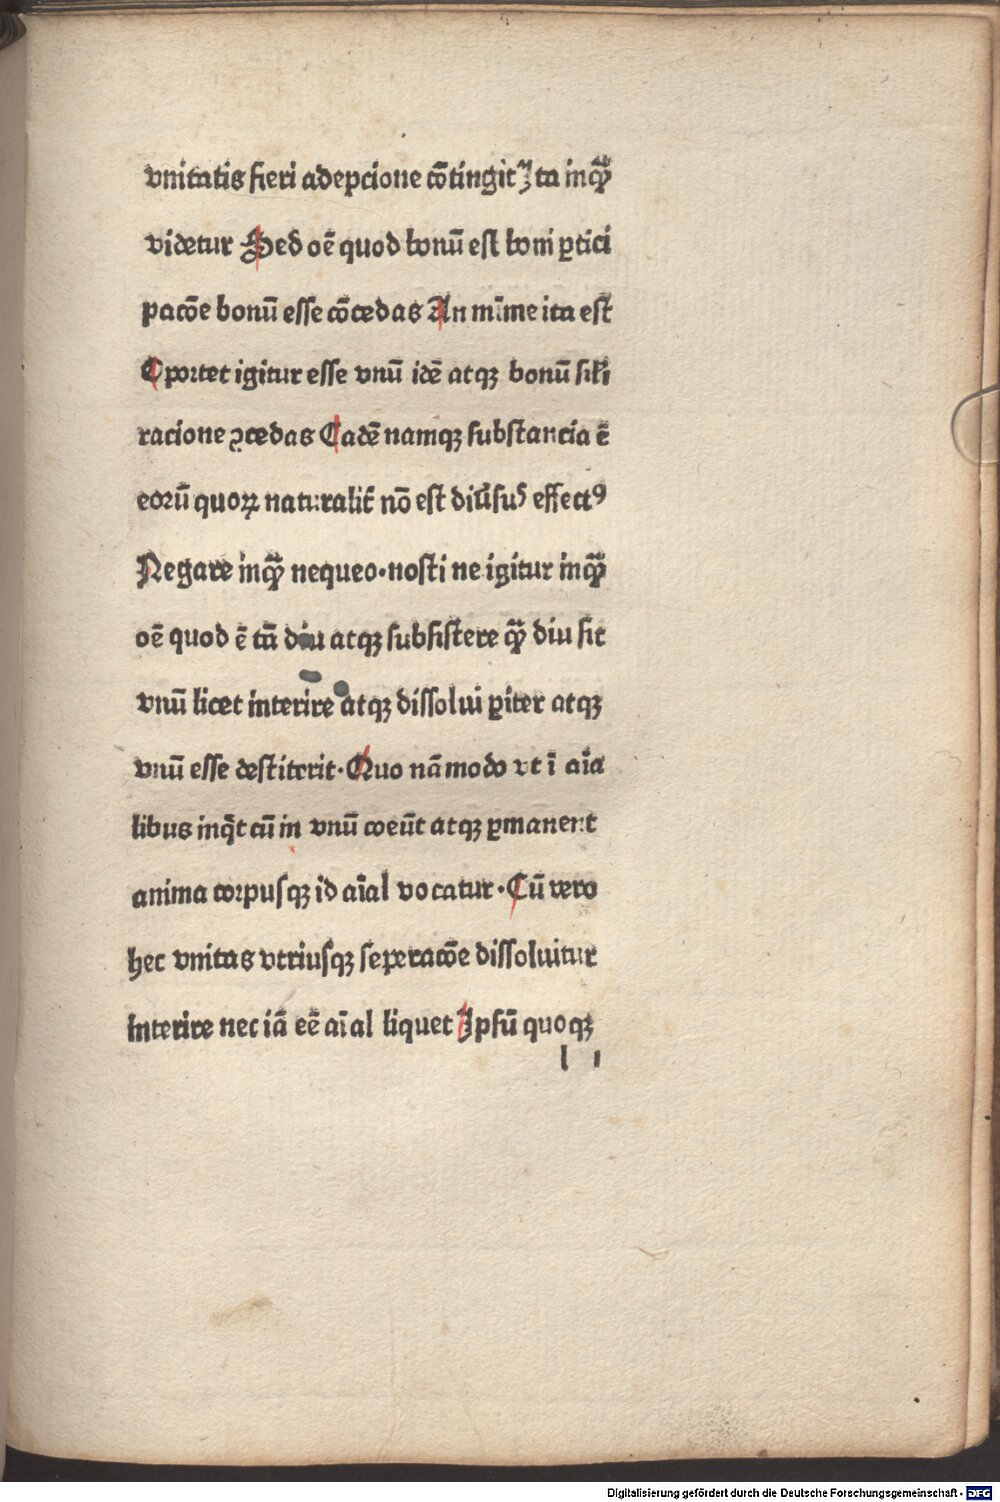 vnitatis fieri adepcione cōtingit Ita inqͣꝫ
videtur Sed oē quod bonū est boni ꝑtici
pacōe bonū esse cōcedas An mīme ita est
Oportet igitur esse vnū idē atqꝫ bonū sil̓i
racione ꝯcedas Eadē namqꝫ substancia ē
eorū quoꝝ naturalit̄ nō est diūsus effectꝰ
Negare inqͣꝫ nequeo·nosti ne igitur inqͣꝫ
oē quod ē tā diu atqꝫ subsistere qͣꝫ diu sit
vnū licet interire atqꝫ dissolui ꝑiter atqꝫ
vnū esse destiterit·Quo nāmodo vt ī aīa
libus inqͥt cū in vnū coeūt atqꝫ ꝑmanent
anima corpusqꝫ id aīal vocatur·Cū vero
hec vnitas vtriusqꝫ seperacōe dissoluitur
interire nec iā eē aīal liquet Ipsū quoqꝫ
l ı
Digitalisierung gefördert durch die Deutsche Forschungsgemeinschaft - DFG